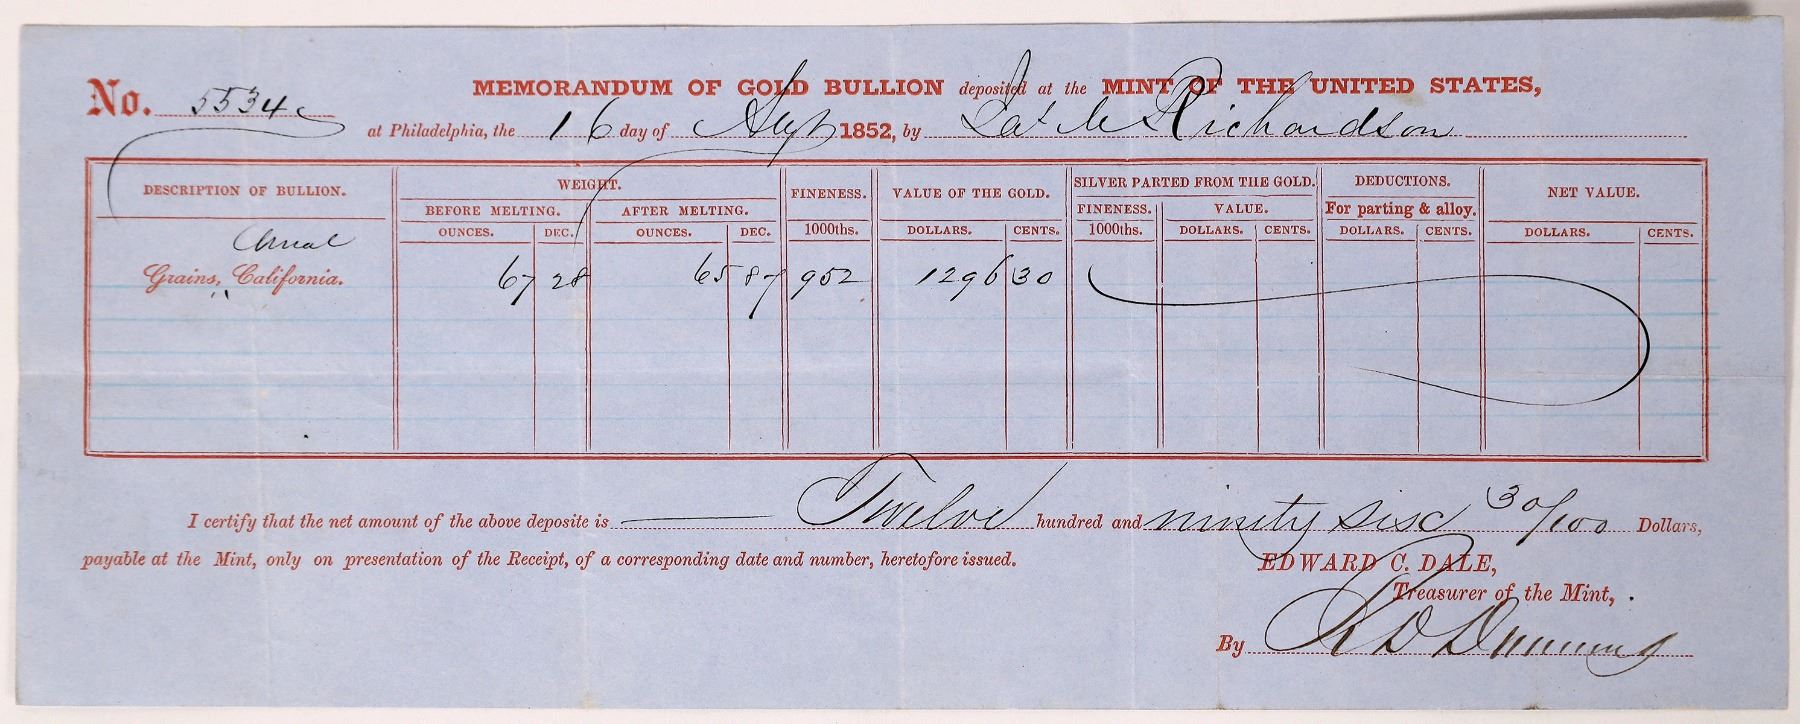 No. 5534
MEMORANDUM OF GOLD BULLION deposited at the MINT OF THE UNITED STATES,
at Philadelphia, the 16 day of 1852, by Richardson
DESCRIPTION OF BULLION. WEIGHT. FINENESS. VALUE OF THE GOLD. SILVER PARTED FROM THE GOLD. DEDUCTIONS. NET VALUE.
BEFORE MELTING. AFTER MELTING. FINENESS. VALUE. For parting & alloy.
OUNCES. DEC. OUNCES. DEC. 1000ths. DOLLARS. CENTS. 1000ths. DOLLARS. CENTS. DOLLARS. CENTS. DOLLARS. CENTS.
Grains, California. 67 28 65 87 952 1296 30
I certify that the net amount of the above deposite is Twelve hundred and ninety six 30/100 Dollars,
payable at the Mint, only on presentation of the Receipt, of a corresponding date and number, heretofore issued.
EDWARD C. DALE,
Treasurer of the Mint,
By